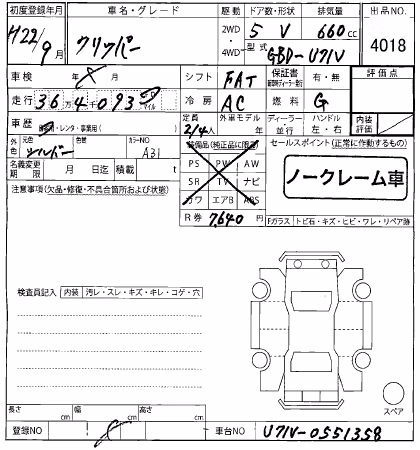 初度登録年月 車名・グレード 駆動 ドア数・形状 排気量 出品NO.
H22/9月 クリッパー 2WD・4WD 5 V 660cc 4018
型式 GBD-U71V
車検 年 月 シフト FAT 保証書 有・無 評価点
走行 36万4千093 マイル 冷房 AC 燃料 G
車歴 自家用・レンタ・事業用( ) 定員 2/4人 外車モデル 年 ディーラー 並行 ハンドル 左・右 内装評価
外色 元色 シルバー 色替 カラーNO A31
装備品(純正品に限る) セールスポイント(正常に作動するもの)
名義変更期限 月 日迄 積載 t
PS PW AW
SR TV ナビ
カワ エアB ABS
ノークレーム車
注意事項(欠品・修復・不具合箇所および状態)
R券 7,640円
Fガラス トビ石・キズ・ヒビ・ワレ・リペア跡
検査員記入 内装 汚レ・スレ・キズ・キレ・コゲ・穴
スペア
長さ cm 幅 cm 高さ cm
登録NO 車台NO U71V-0551358